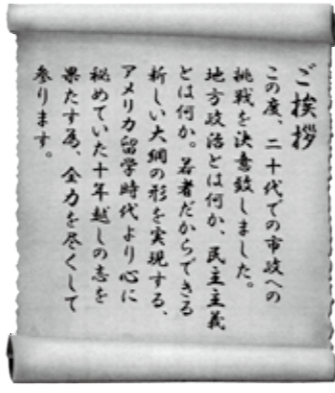 ご挨拶
この度、二十代での市政への
挑戦を決意致しました。
地方政治とは何か、民主主義
とは何か。若者だからできる
新しい大綱の形を実現する、
アメリカ留学時代より心に
秘めていた十年越しの志を
果たす為、全力を尽くして
参ります。